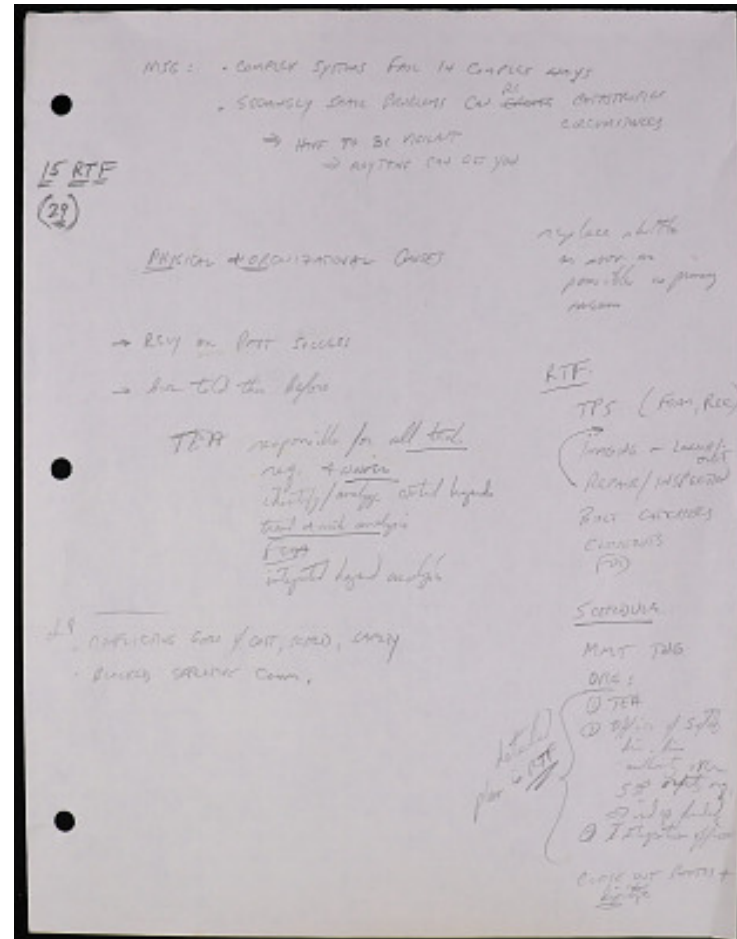 MSG: • COMPLEX SYSTEMS FAIL IN COMPLEX WAYS
• SEEMINGLY SMALL PROBLEMS CAN BE CATASTROPHIC
CIRCUMSTANCES
⇒ HAVE TO BE VIGILANT
⇒ ANYTHING CAN GET YOU
15 RTF
(29)
PHYSICAL + ORGANIZATIONAL CAUSES
replace shuttle
as soon as
possible as primary
→ RELY ON PAST SUCCESS
→ told this before
TEA responsible for all tech.
req. + waivers
identify/analyze control hazards
trend & risk analysis
integrated hazard analysis
RTF:
TPS (FOAM, RCC)
IMAGING - LAUNCH/
ORBIT
REPAIR/INSPECTION
BOLT CATCHERS
CLOSEOUTS
SCHEDULE
MMT TNG
ORG:
① TEA
② Office of Safety
③ Integration office
detailed
plan RTF
CLOSE OUT PHOTOS +
• CONFLICTING GOALS / COST, SCHED, SAFETY
• BLOCKED EFFECTIVE COMM.